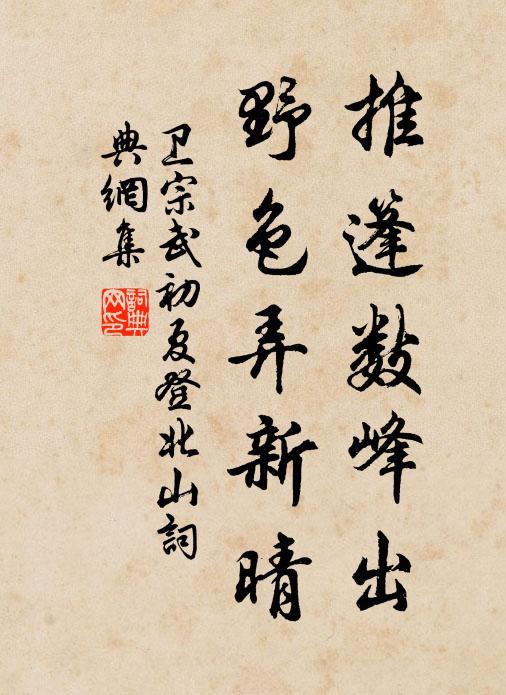 推蓬数峰出
野色弄新晴
卫宗武初夏登北山詞
典網集
詞典
网印